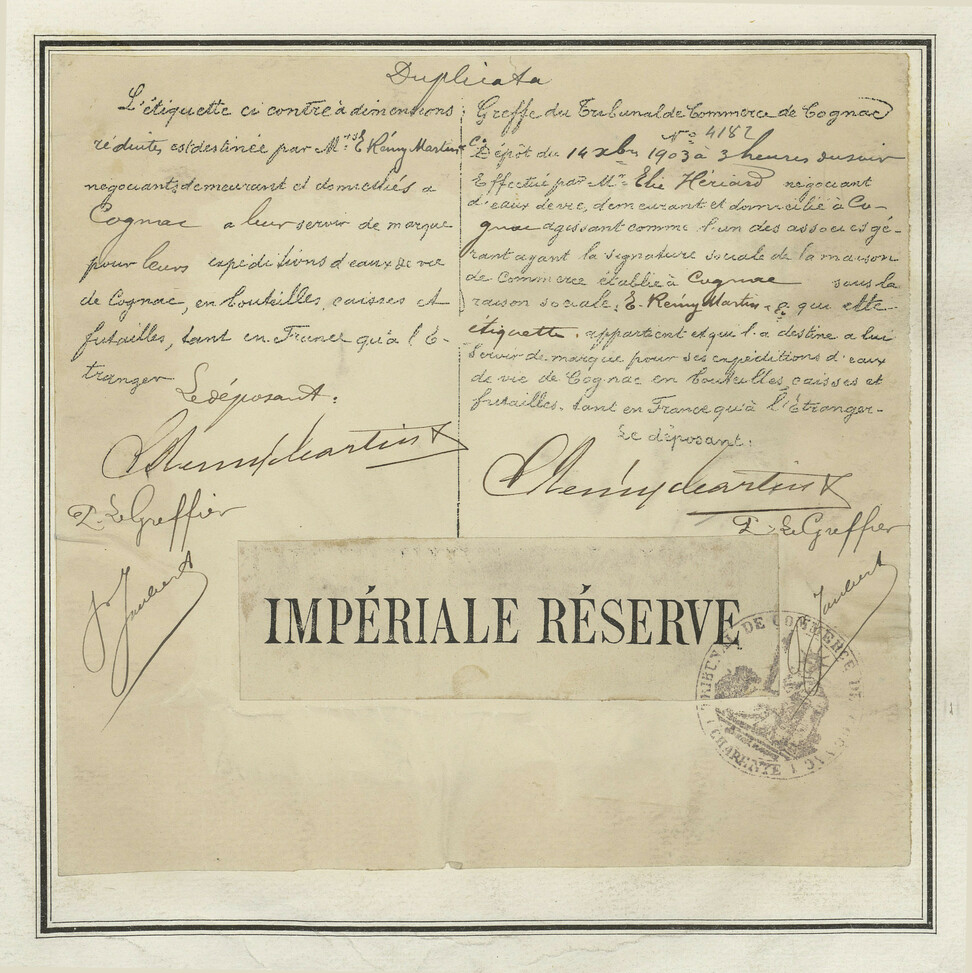 Duplicata
L'étiquette ci contre à dimensions
réduites est destinée par M.rs E. Rémy Martin & Co
négociants demeurant et domiciliés à
Cognac a leur servir de marque
pour leurs expéditions d'eaux de vie
de Cognac, en bouteilles, caisses et
futailles, tant en France qu'à l'É-
tranger
Le déposant:
E Remy Martin & Co
P. Le Greffier
Joubert
Greffe du Tribunal de Commerce de Cognac
No 4182
Dépôt du 14 xbre 1903 à 3 heures du soir
Effectué par Mr. Elie Hériard négociant
d'eaux de vie, demeurant et domicilié à Co-
gnac agissant comme l'un des associés gé-
rant ayant la signature sociale de la maison
de Commerce établie à Cognac sous la
raison sociale, E. Rémy Martin & Co qui cette
étiquette appartient et qui l'a destine a lui
servir de marque pour ses expéditions d'eaux
de vie de Cognac en bouteilles, caisses et
futailles, tant en France qu'à l'Étranger-
Le déposant:
E Remy Martin & Co
P. Le Greffier
Joubert
IMPÉRIALE RÉSERVE
TRIBUNAL DE COMMERCE DE COGNAC
(CHARENTE)